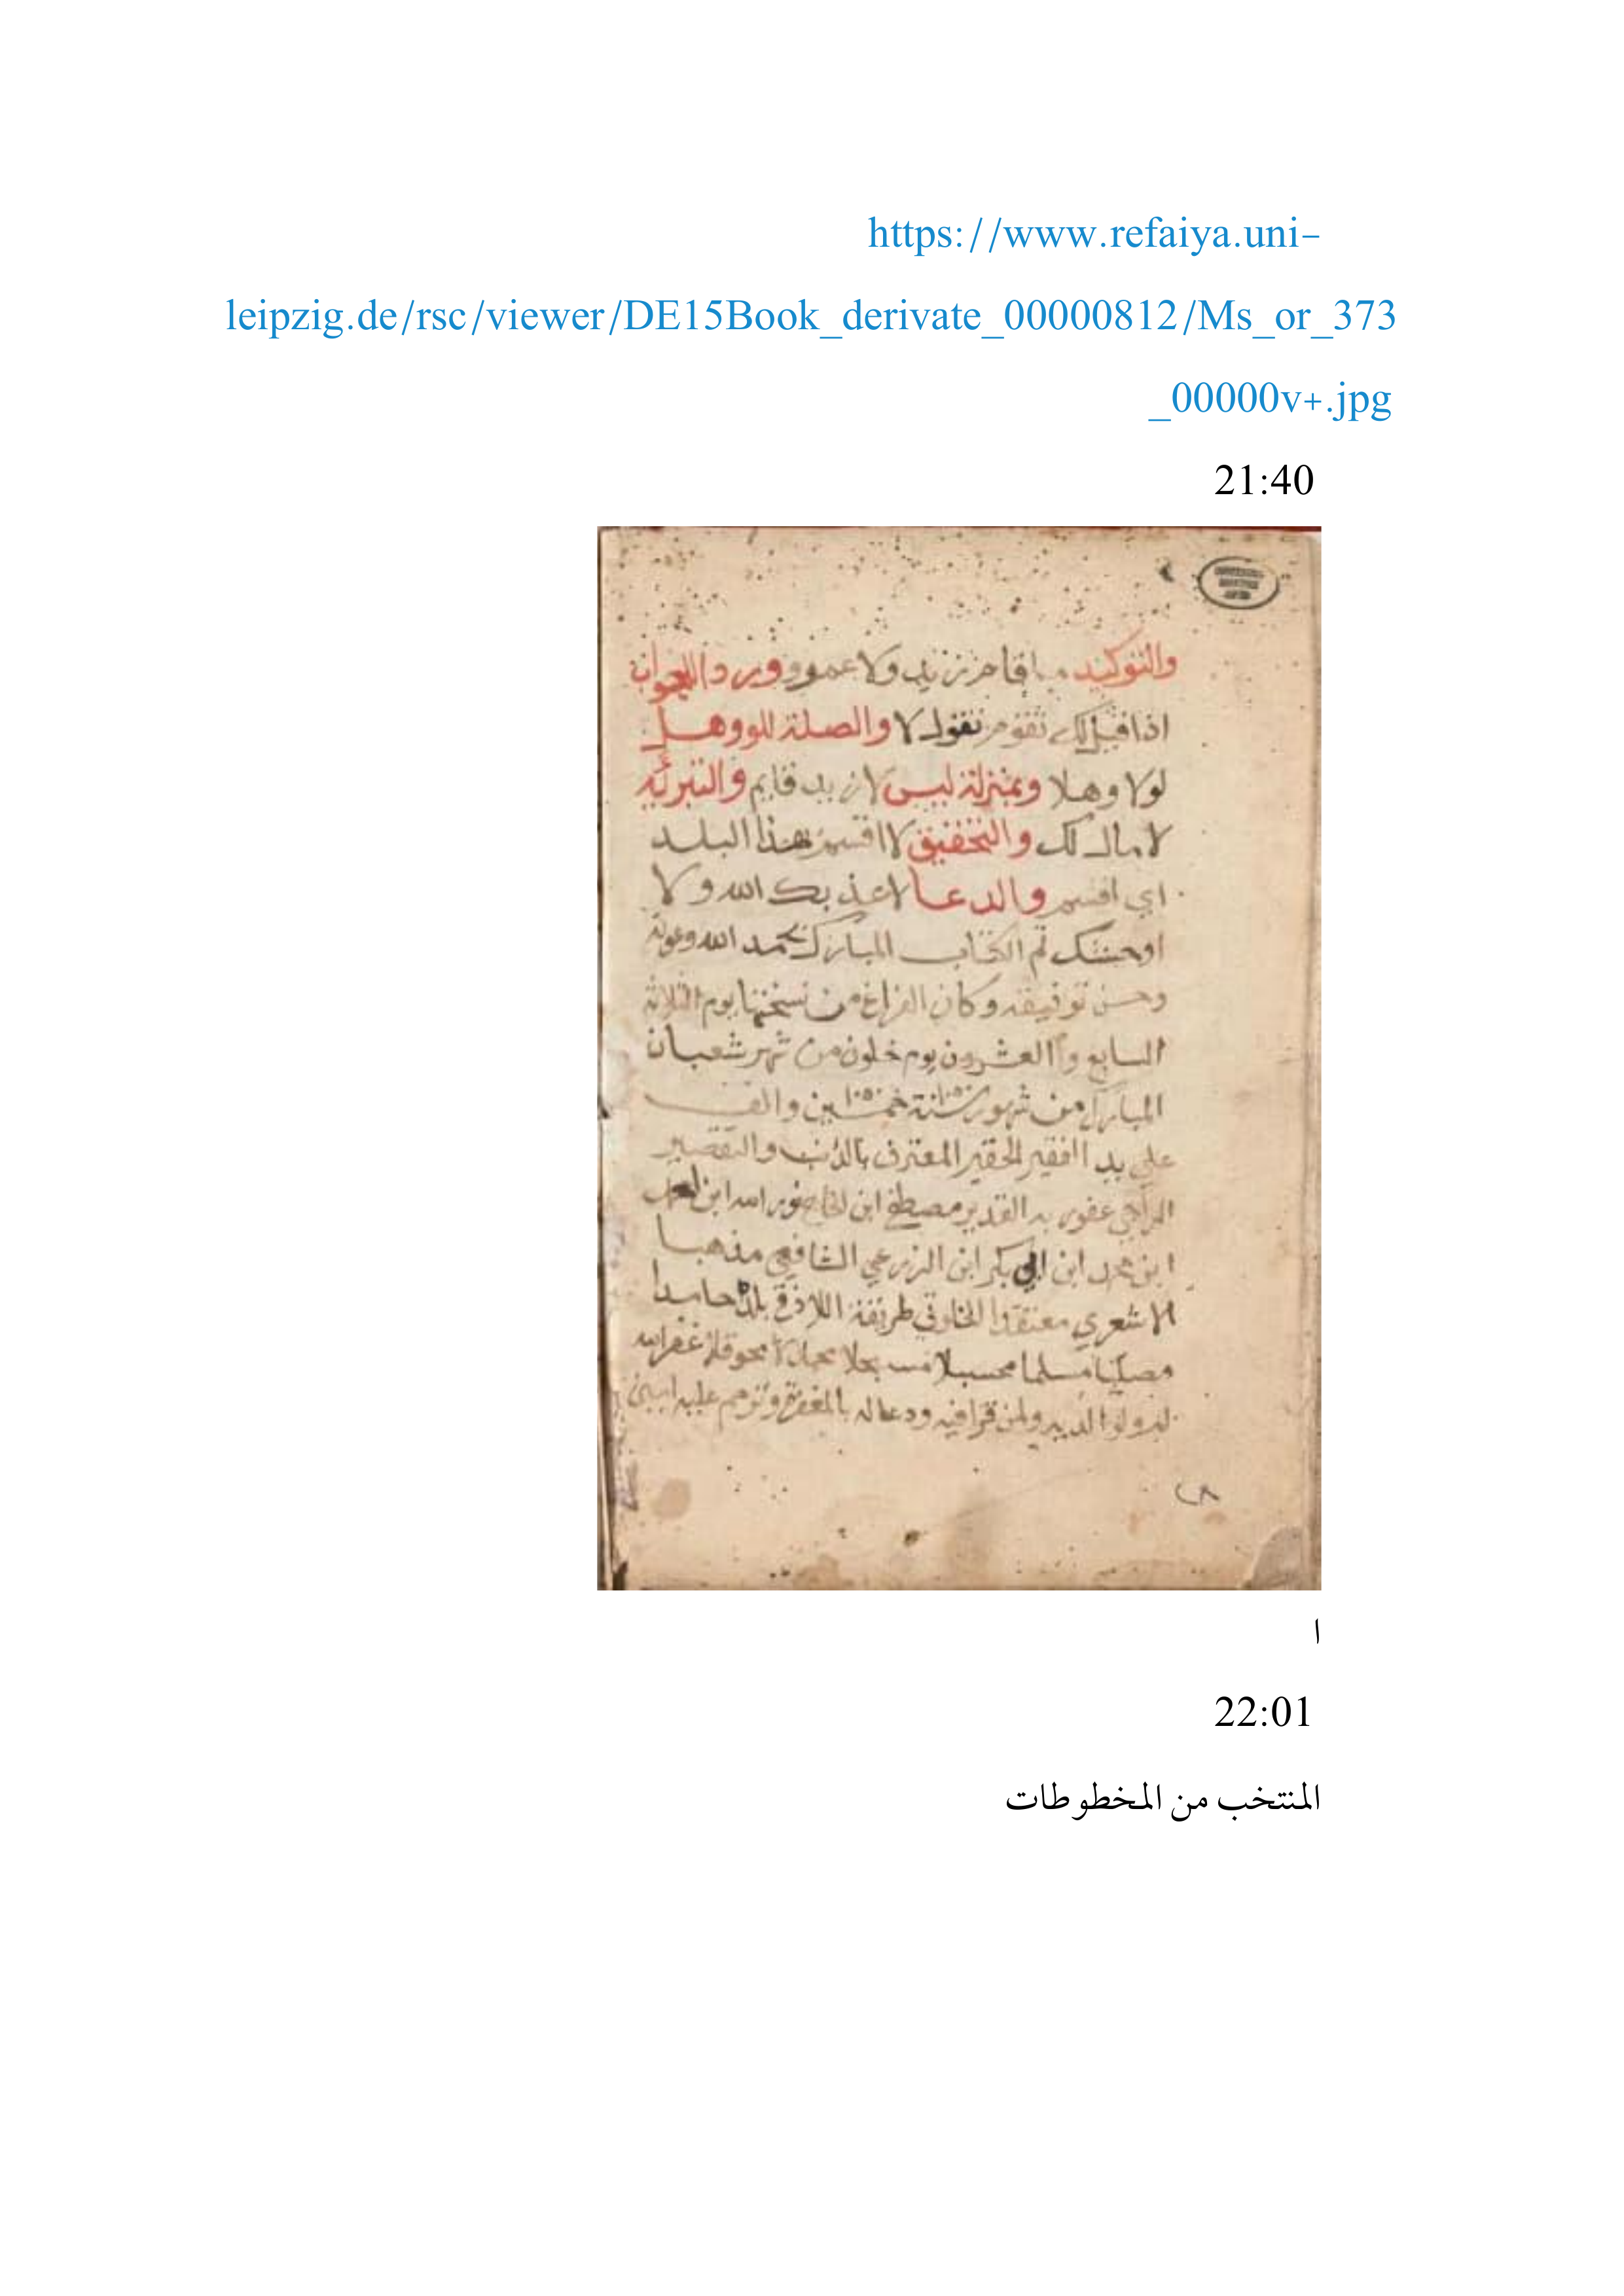 https://www.refaiya.uni-
leipzig.de/rsc/viewer/DE15Book_derivate_00000812/Ms_or_373
_00000v+.jpg
21:40
والتوكيد ما قام زيد ولا عمرو ورد الجواب
اذا قيل لك تقوم تقول لا والصلة للو وهل
لولا وهلا وبمنزلة ليس لا زيد قايم والتبرئه
لا مال لك والتحقيق لا اقسم بهذا البلد
اي اقسم والدعا لا عذبك الله ولا
اوحشك تم الكتاب المبارك بحمد الله وعونه
وحسن توفيقه وكان الفراغ من نسختها يوم الثلاثه
السابع والعشرون يوم خلون من شهر شعبان
المبارك من شهور سنة ١٠٥٠ خمسين والف
علي يد الفقير الحقير المعترف بالذنب والتقصير
الراجي عفو ربه القدير مصطفى ابن الحاج نور الله ابن
ابن محمد ابن ابي بكر ابن الزرعي الشافعي مذهبا
الاشعري معتقدا الخلوتي طريقة اللاذقي بلدة حامدا
مصليا مسلما محسبلا محوقلا غفر الله
له ولوالديه ولمن قرا فيه ودعا له بالمغفرة وترحم عليه امين
٢٨
ا
22:01
المنتخب من المخطوطات